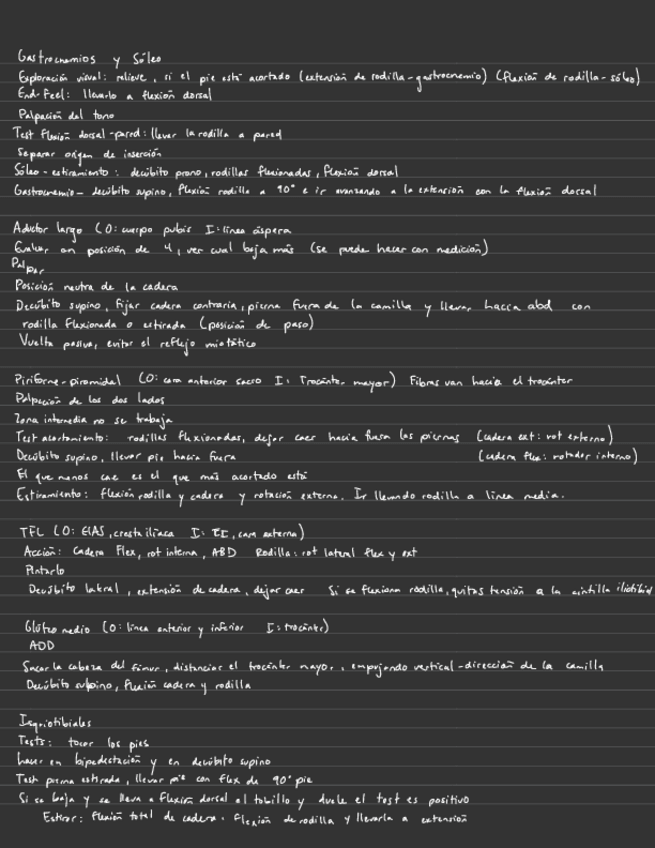 Gastrocnemios y Sóleo
Exploración visual: relieve, si el pie está acortado (extensión de rodilla-gastrocnemio) (flexión de rodilla-sóleo)
End-Feel: llevarlo a flexión dorsal
Palpación del tono
Test flexión dorsal-pared: llevar la rodilla a pared
Separar origen de inserción
Sóleo-estiramiento: decúbito prono, rodillas flexionadas, flexión dorsal
Gastrocnemio- decúbito supino, flexión rodilla a 90° e ir avanzando a la extensión con la flexión dorsal
Aductor largo (O: cuerpo pubis I: línea áspera
Evaluar en posición de 4, ver cual baja más (se puede hacer con medición)
Palpar
Posición neutra de la cadera
Decúbito supino, fijar cadera contraria, pierna fuera de la camilla y llevar hacia abd con
rodilla flexionada o estirada (posición de paso)
Vuelta pasiva, evitar el reflejo miotático
Piriforme-piramidal (O: cara anterior sacro I: Trocánter mayor) Fibras van hacia el trocánter
Palpación de los dos lados
Zona intermedia no se trabaja
Test acortamiento: rodillas flexionadas, dejar caer hacia fuera las piernas (cadera ext: rot externo)
Decúbito supino, llevar pie hacia fuera (cadera flex: rotador interno)
El que menos cae es el que más acortado está
Estiramiento: flexión rodilla y cadera y rotación externa. Ir llevando rodilla a línea media.
TFL (O: EIAS, cresta ilíaca I: TI, cara externa)
Acción: Cadera Flex, rot interna, ABD Rodilla: rot lateral flex y ext
Pintarlo
Decúbito lateral, extensión de cadera, dejar caer Si se flexiona rodilla, quitas tensión a la cintilla iliotibial
Glúteo medio (O: línea anterior y inferior I: trocánter)
ADD
Sacar la cabeza del fémur, distanciar el trocánter mayor, empujando vertical-dirección de la camilla
Decúbito supino, flexión cadera y rodilla
Isquiotibiales
Tests: tocar los pies
hacer en bipedestación y en decúbito supino
Test pierna estirada, llevar pie con flex de 90° pie
Si se baja y se lleva a flexión dorsal el tobillo y duele el test es positivo
Estirar: flexión total de cadera. flexión de rodilla y llevarla a extensión